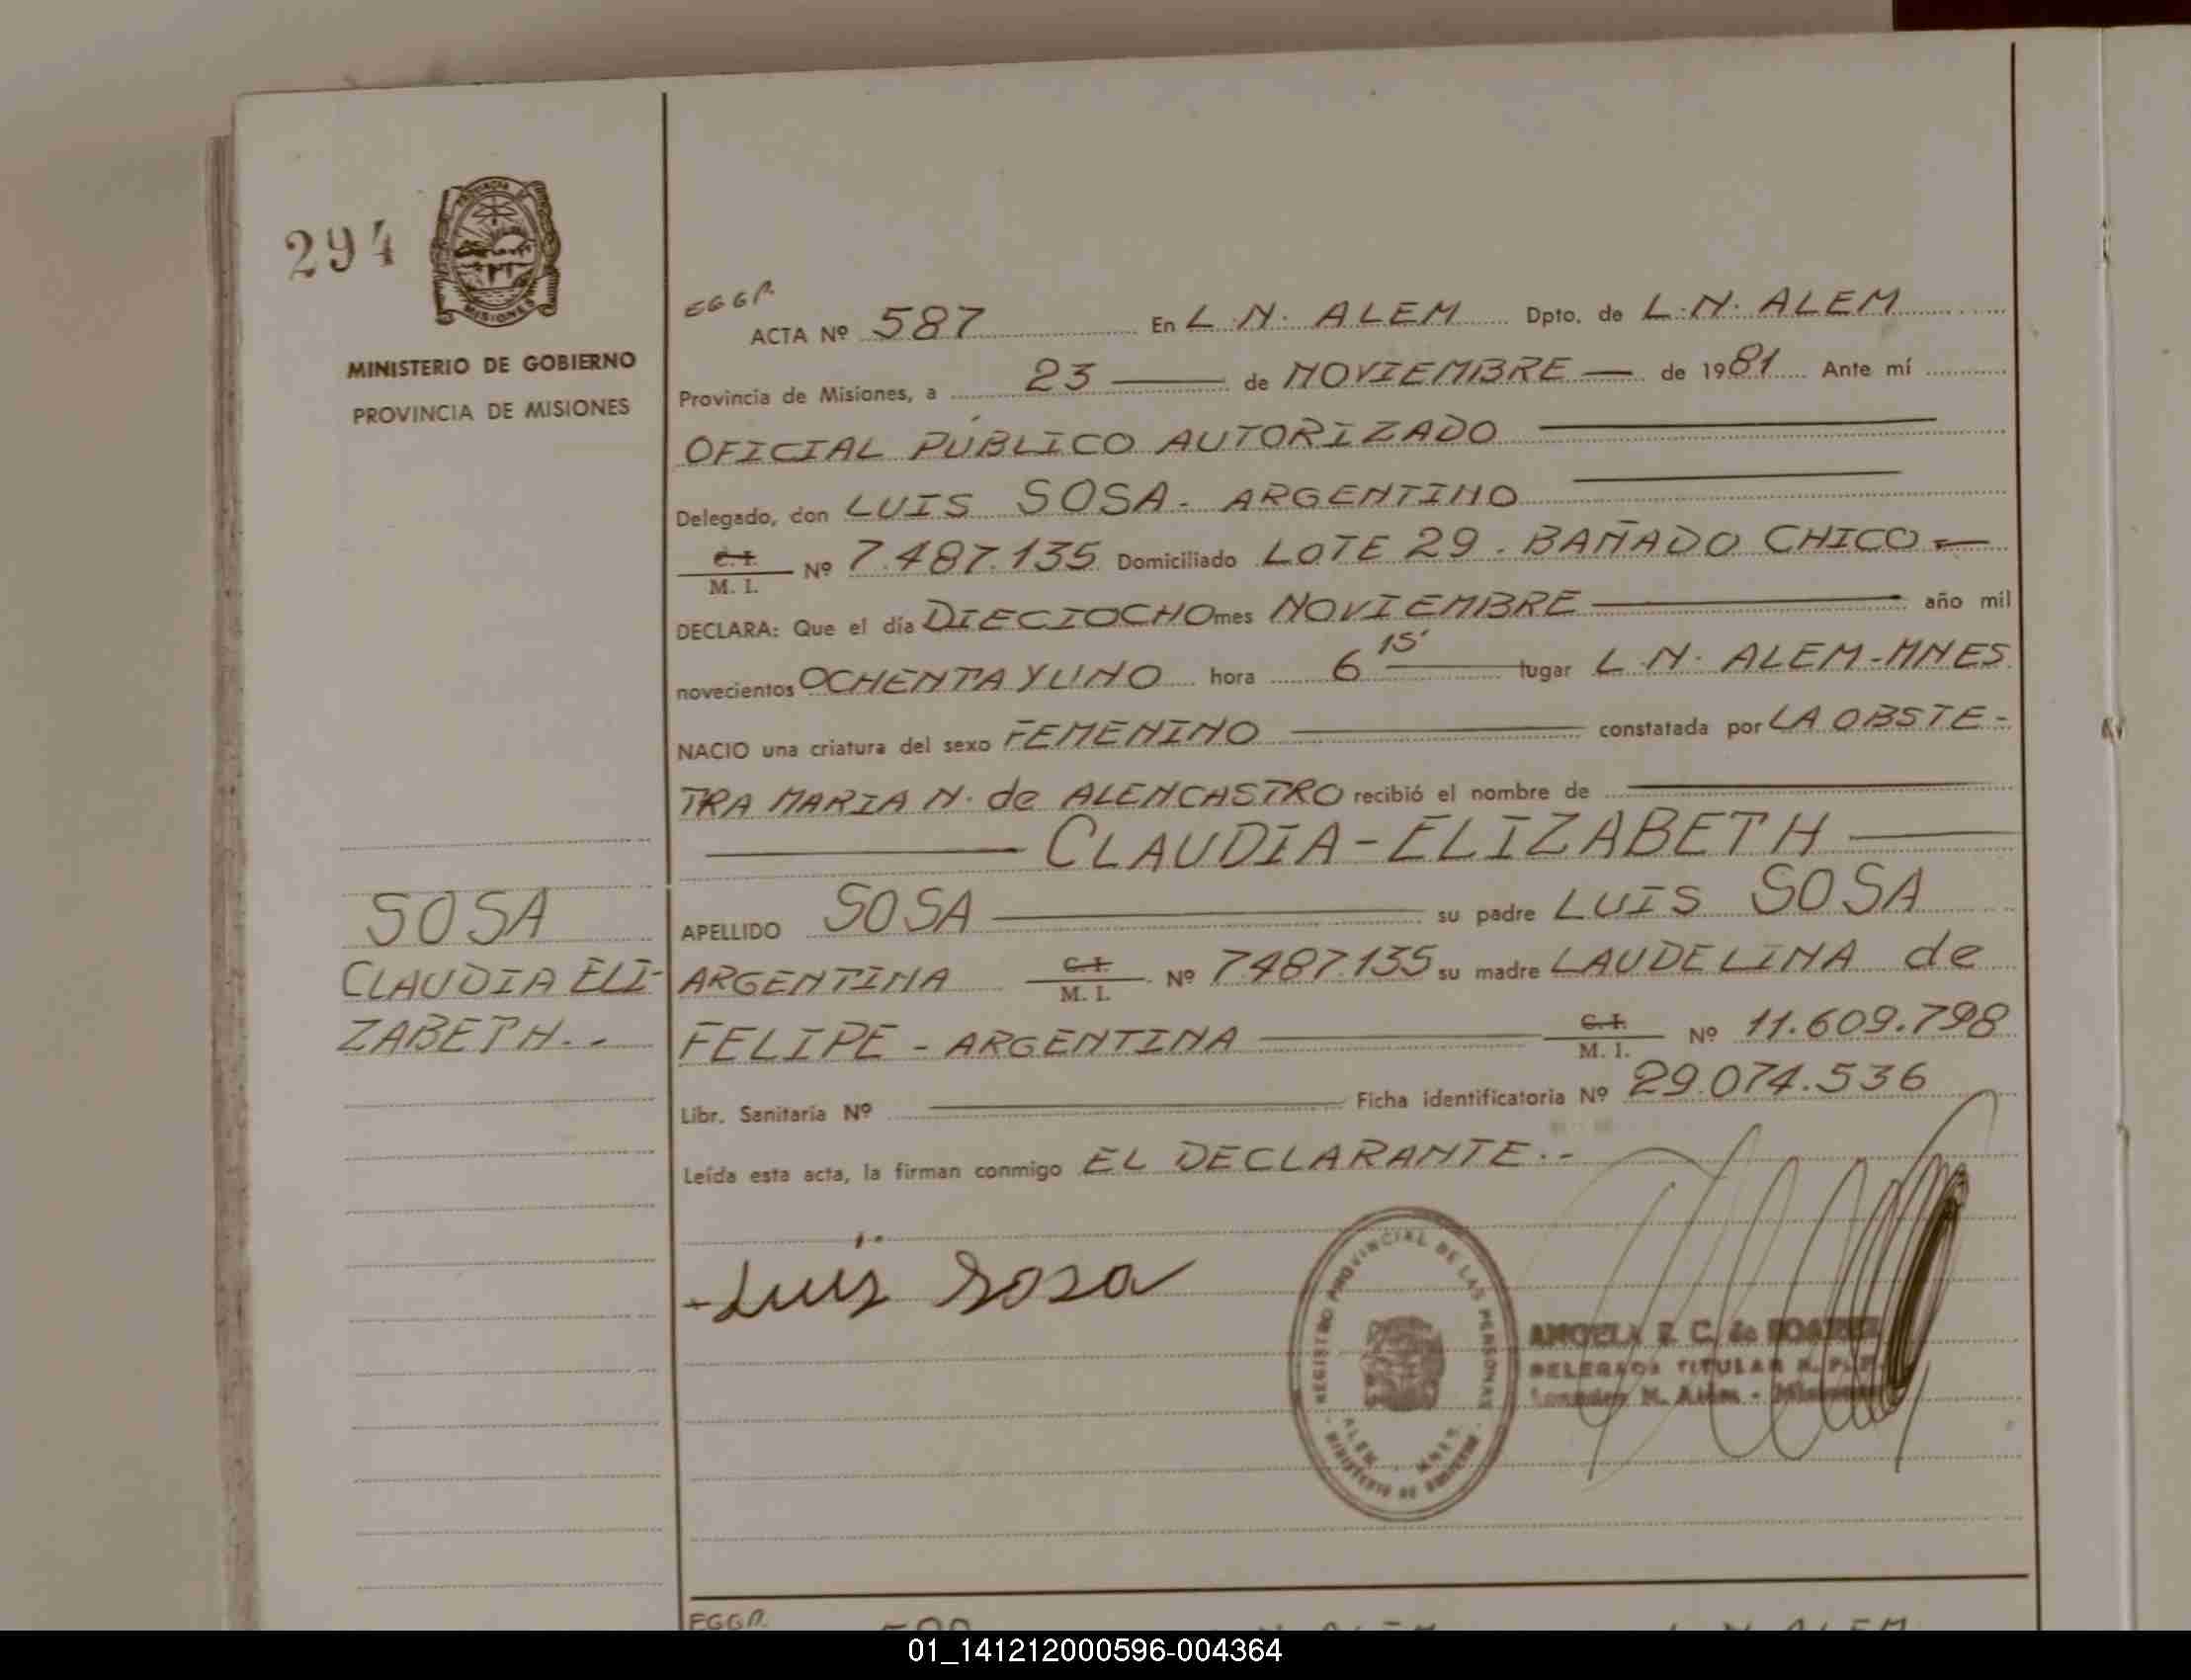 294
PROVINCIA DE
MISIONES
MINISTERIO DE GOBIERNO
PROVINCIA DE MISIONES
EGGR.
ACTA Nº 587 En L. N. ALEM Dpto. de L. N. ALEM
Provincia de Misiones, a 23 — de NOVIEMBRE — de 1981 Ante mí
OFICIAL PÚBLICO AUTORIZADO
Delegado, don LUIS SOSA - ARGENTINO
C. I.
M. I. Nº 7.487.135 Domiciliado LOTE 29 - BAÑADO CHICO -
DECLARA: Que el día DIECIOCHO mes NOVIEMBRE — año mil
novecientos OCHENTA Y UNO hora 6 15' — lugar L. N. ALEM - MNES
NACIO una criatura del sexo FEMENINO — constatada por LA OBSTE-
TRA MARIA N. de ALENCASTRO recibió el nombre de —
— CLAUDIA - ELIZABETH —
APELLIDO SOSA — su padre LUIS SOSA
ARGENTINA C. I.
M. I. Nº 7487.135 su madre LAUDELINA de
FELIPE - ARGENTINA — C. I.
M. I. Nº 11.609.798
Libr. Sanitaria Nº — Ficha identificatoria Nº 29.074.536
Leída esta acta, la firman conmigo EL DECLARANTE.-
SOSA
CLAUDIA ELI-
ZABETH.-
- Luis Sosa
REGISTRO PROVINCIAL DE LAS PERSONAS
ALEM - MNES.
MINISTERIO DE GOBIERNO
ANGELA Z. C. de
DELEGADA TITULAR R. P. P.
Leandro N. Alem - Misiones
EGGR.
01_141212000596-004364